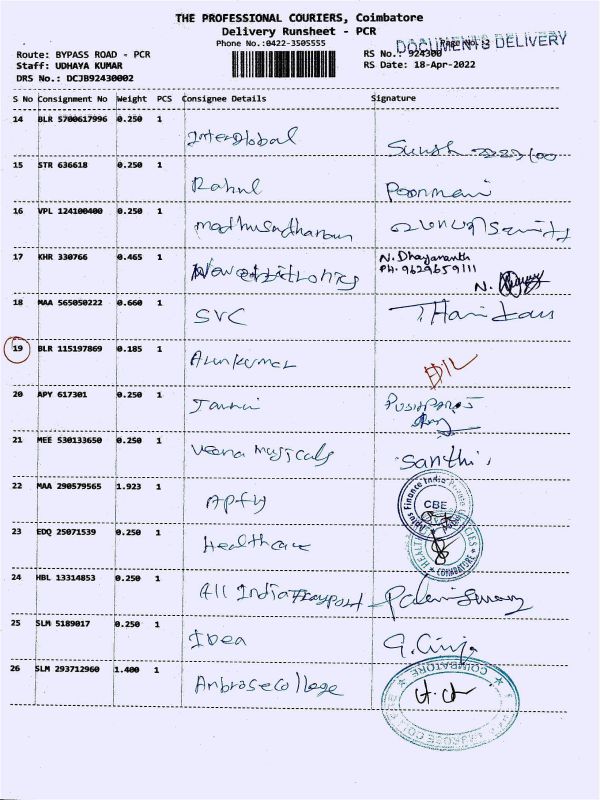 THE PROFESSIONAL COURIERS, Coimbatore
Delivery Runsheet - PCR
Phone No.:0422-3505555
DOCUMENTS DELIVERY
Page No.: 3
Route: BYPASS ROAD - PCR
RS No.: 924300
Staff: UDHAYA KUMAR
RS Date: 18-Apr-2022
DRS No.: DCJB92430002
S No Consignment No Weight PCS Consignee Details Signature
14 BLR 5700617996 0.250 1
Interglobal
15 STR 636618 0.250 1
Rahul Poonmani
16 VPL 124100400 0.250 1
madhusudhanan
17 KHR 330766 0.465 1
N. Dhayananth
Ph. 9629659111
N.
18 MAA 565050222 0.660 1
SVC
19 BLR 115197869 0.185 1
Arunkumar
D/L
20 APY 617301 0.250 1
21 MEE 530133650 0.250 1
Veena musicals Santhi
22 MAA 290579565 1.923 1
Apfy
Aptus Finance India Private
CBE
23 EDQ 25071539 0.250 1
Healthcare
COIMBATORE
24 HBL 13314853 0.250 1
All India Transport
25 SLM 5189017 0.250 1
Idea
26 SLM 293712960 1.400 1
Ambrose College
COIMBATORE